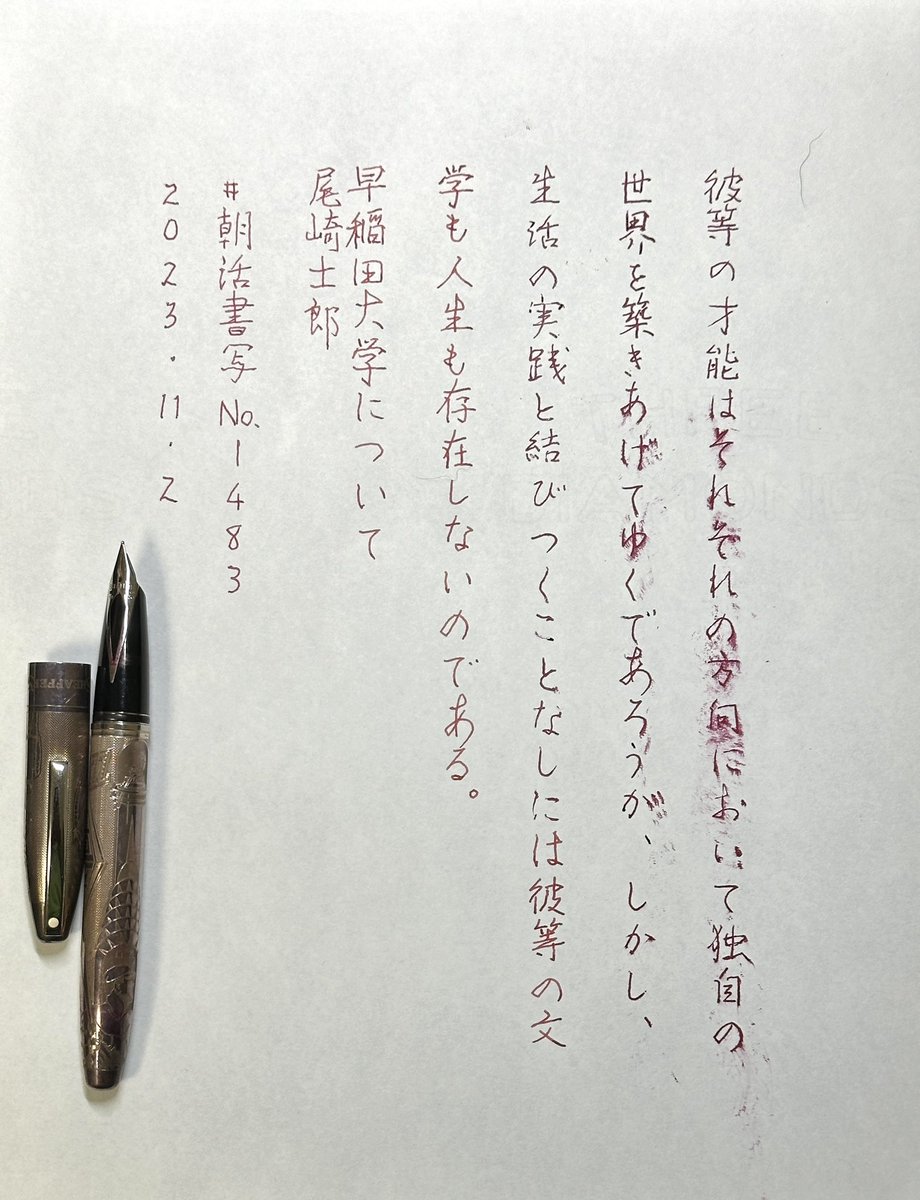 彼等の才能はそれそれの方向において独自の
世界を築きあげてゆくであろうが、しかし、
生活の実践と結びつくことなしには彼等の文
学も人生も存在しないのである。
早稲田大学について
尾崎士郎
#朝活書写No.1483
2023.11.2
SHEAFFER